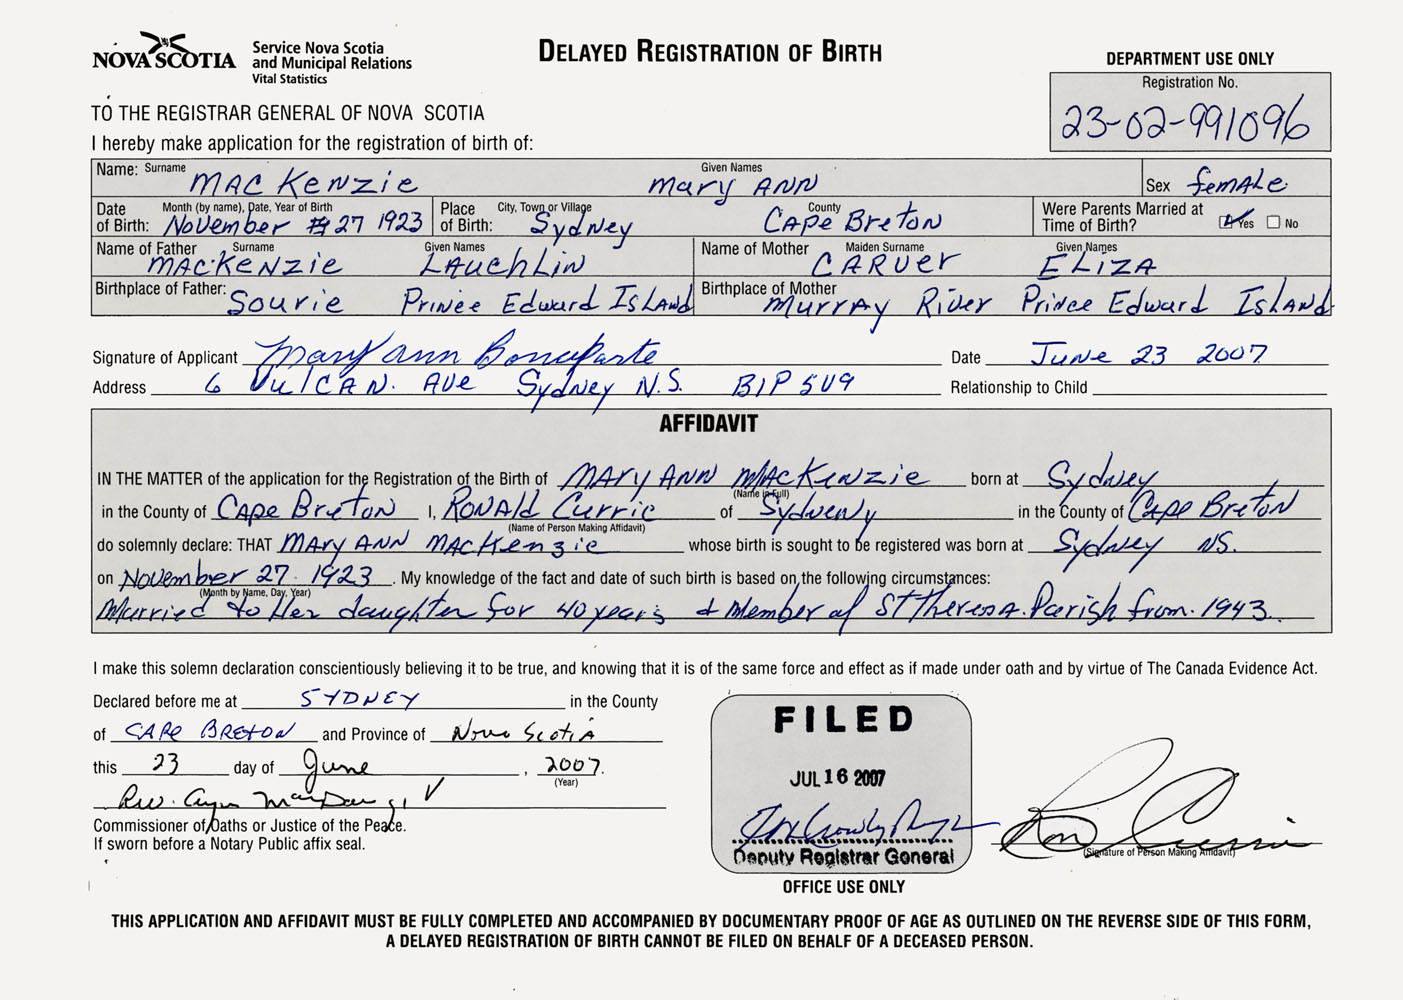 NOVA SCOTIA
Service Nova Scotia
and Municipal Relations
Vital Statistics
DELAYED REGISTRATION OF BIRTH
DEPARTMENT USE ONLY
Registration No.
23-02-991096
TO THE REGISTRAR GENERAL OF NOVA SCOTIA
I hereby make application for the registration of birth of:
Name: Surname MAC Kenzie Given Names Mary ANN Sex femALe
Date of Birth: Month (by name), Date, Year of Birth November 27 1923 Place of Birth: City, Town or Village Sydney County CAPe BreTON Were Parents Married at Time of Birth? Yes No
Name of Father Surname MACKeNZie Given Names LAuchLiN Name of Mother Maiden Surname CARVer Given Names ELiZA
Birthplace of Father: Sourie Prince Edward IsLANd Birthplace of Mother Murray River Prince Edward IsLANd
Signature of Applicant Mary ann Bonaparte Date June 23 2007
Address 6 VuLCAN. Ave Sydney N.S. B1P 5V9 Relationship to Child
AFFIDAVIT
IN THE MATTER of the application for the Registration of the Birth of MAry ANN MacKenzie born at Sydney
(Name in Full)
in the County of CApe BreTON I, RONAld Currie of Sydueny in the County of Cape BreTON
(Name of Person Making Affidavit)
do solemnly declare: THAT MAry ANN MACKenzie whose birth is sought to be registered was born at Sydney NS.
on November 27. 1923 . My knowledge of the fact and date of such birth is based on the following circumstances:
(Month by Name, Day, Year)
Married to Her daughter for 40 years & Member of St Theresa. Parish from. 1943.
I make this solemn declaration conscientiously believing it to be true, and knowing that it is of the same force and effect as if made under oath and by virtue of The Canada Evidence Act.
Declared before me at SYDNEY in the County
of CAPe BRETON and Province of Nova Scotia
this 23 day of June , 2007.
(Year)
Rev.
Commissioner of Oaths or Justice of the Peace.
If sworn before a Notary Public affix seal.
FILED
JUL 16 2007
Deputy Registrar General
OFFICE USE ONLY
Ron Currie
(Signature of Person Making Affidavit)
THIS APPLICATION AND AFFIDAVIT MUST BE FULLY COMPLETED AND ACCOMPANIED BY DOCUMENTARY PROOF OF AGE AS OUTLINED ON THE REVERSE SIDE OF THIS FORM,
A DELAYED REGISTRATION OF BIRTH CANNOT BE FILED ON BEHALF OF A DECEASED PERSON.